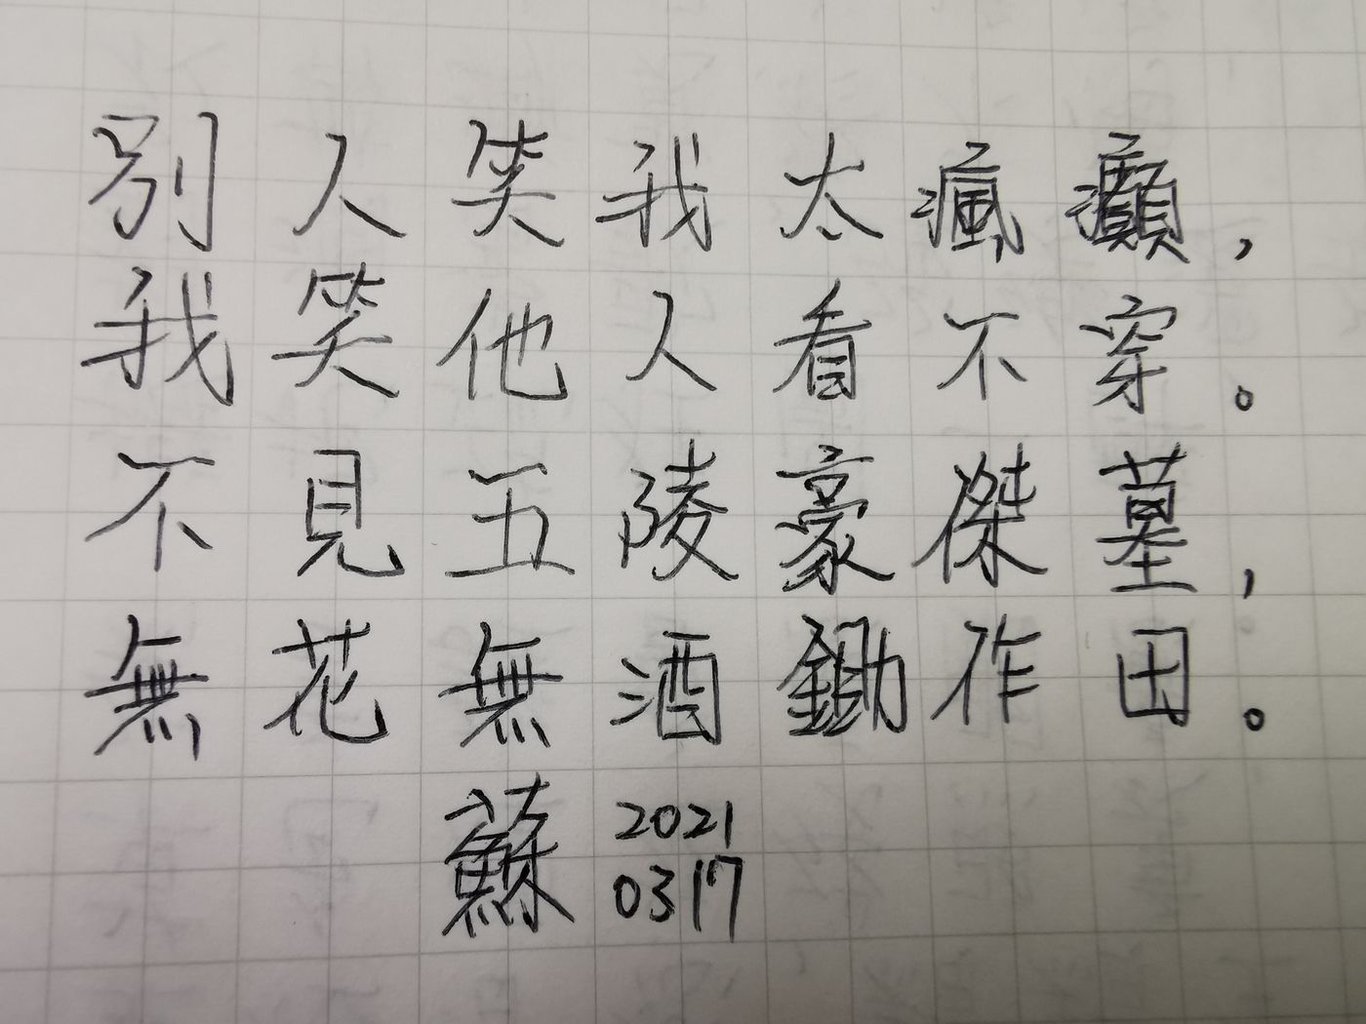 別人笑我太瘋癲，
我笑他人看不穿。
不見五陵豪傑墓，
無花無酒鋤作田。
蘇 2021
0317